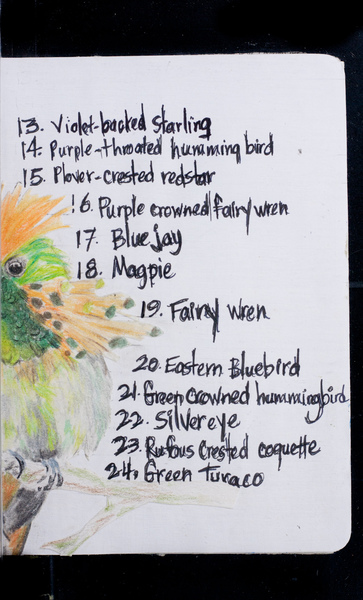 13. Violet-backed starling
14. Purple-throated humming bird
15. Plover-crested redstar
16. Purple crowned fairy wren
17. Blue jay
18. Magpie
19. Fairy wren
20. Eastern Bluebird
21. Green crowned hummingbird
22. Silvereye
23. Rufous crested coquette
24. Green Turaco